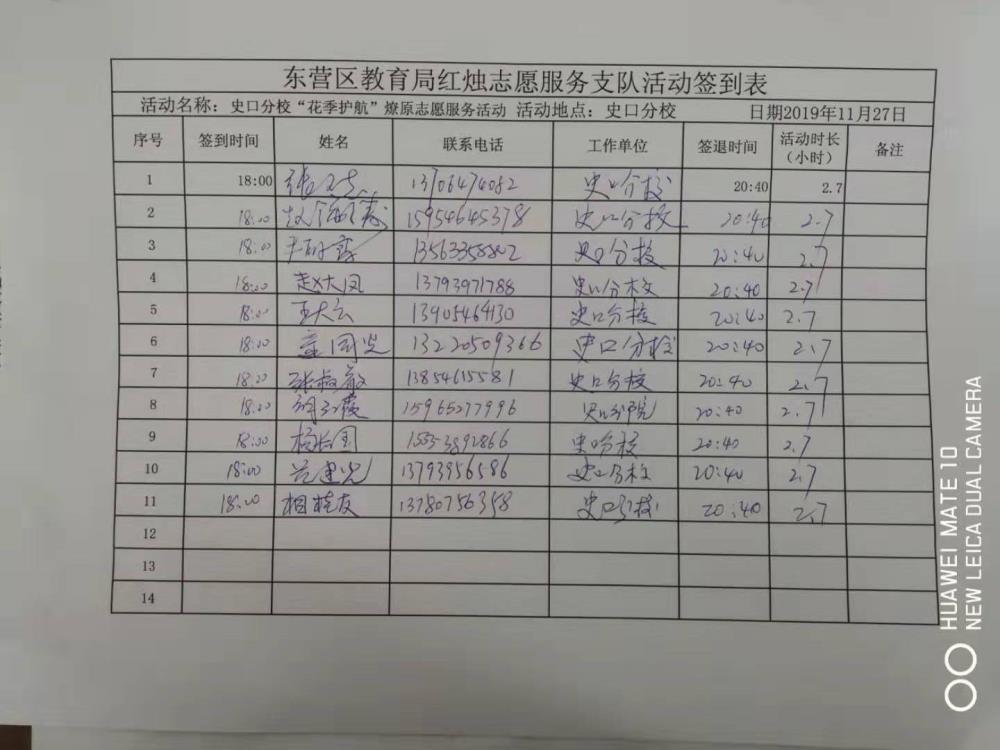 东营区教育局红烛志愿服务支队活动签到表
活动名称：史口分校“花季护航”燎原志愿服务活动 活动地点：史口分校 日期2019年11月27日
序号 签到时间 姓名 联系电话 工作单位 签退时间 活动时长（小时） 备注
1 18:00 13706474082 史口分校 20:40 2.7
2 18:00 15954645378 史口分校 20:40 2.7
3 18:00 13563358802 史口分校 20:40 2.7
4 18:00 赵大凤 13793971788 史口分校 20:40 2.7
5 18:00 王大云 13905464130 史口分校 20:40 2.7
6 18:00 13220509366 史口分校 20:40 2.7
7 18:00 张淑敏 13854615581 史口分校 20:40 2.7
8 18:00 15965277996 20:40 2.7
9 18:00 杨长国 史口分校 20:40 2.7
10 18:00 13793956586 史口分校 20:40 2.7
11 18:00 相桂友 13780756358 史口分校 20:40 2.7
12
13
14
HUAWEI MATE 10
NEW LEICA DUAL CAMERA